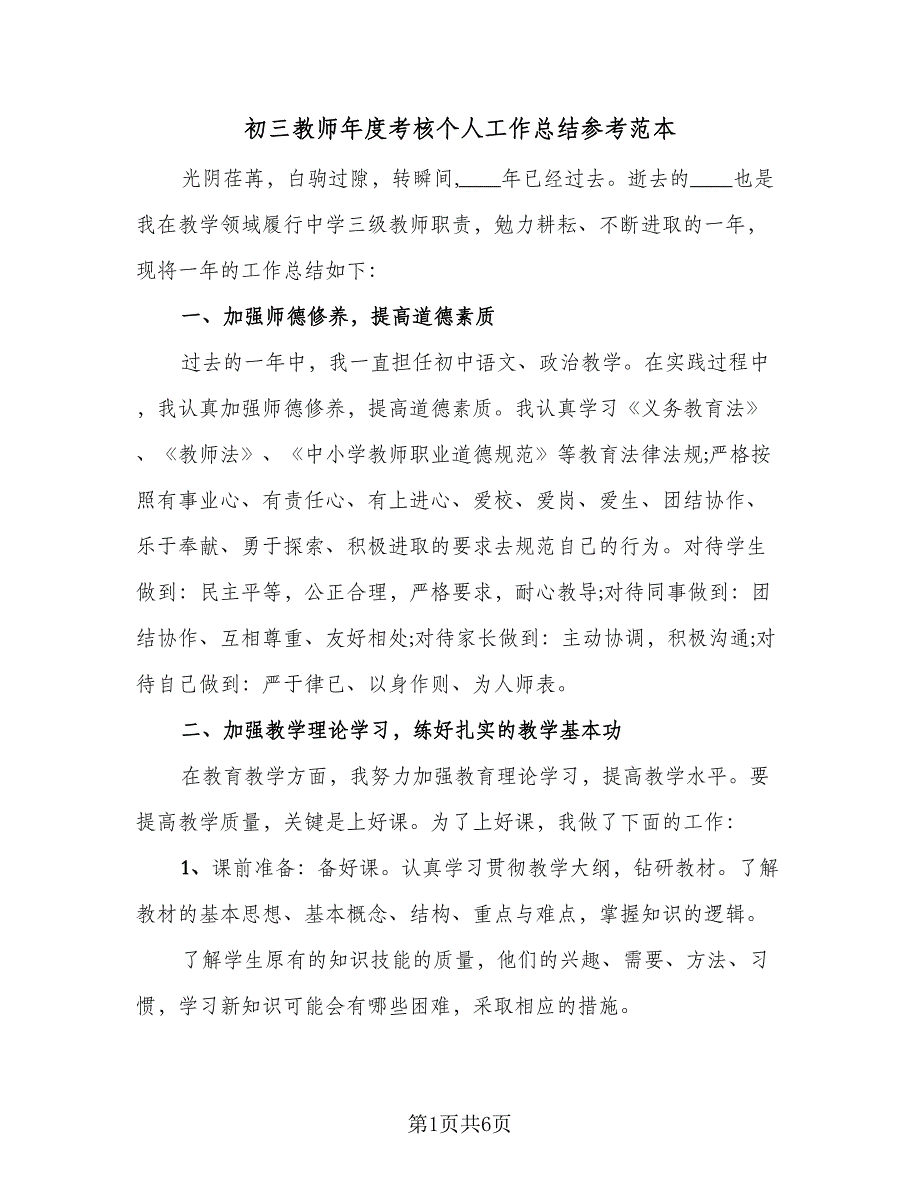 初三教师年度考核个人工作总结参考范本
光阴荏苒，白驹过隙，转瞬间,____年已经过去。逝去的____也是
我在教学领域履行中学三级教师职责，勉力耕耘、不断进取的一年，
现将一年的工作总结如下：
一、加强师德修养，提高道德素质
过去的一年中，我一直担任初中语文、政治教学。在实践过程中
，我认真加强师德修养，提高道德素质。我认真学习《义务教育法》
、《教师法》、《中小学教师职业道德规范》等教育法律法规;严格按
照有事业心、有责任心、有上进心、爱校、爱岗、爱生、团结协作、
乐于奉献、勇于探索、积极进取的要求去规范自己的行为。对待学生
做到：民主平等，公正合理，严格要求，耐心教导;对待同事做到：团
结协作、互相尊重、友好相处;对待家长做到：主动协调，积极沟通;对
待自己做到：严于律已、以身作则、为人师表。
二、加强教学理论学习，练好扎实的教学基本功
在教育教学方面，我努力加强教育理论学习，提高教学水平。要
提高教学质量，关键是上好课。为了上好课，我做了下面的工作：
1、课前准备：备好课。认真学习贯彻教学大纲，钻研教材。了解
教材的基本思想、基本概念、结构、重点与难点，掌握知识的逻辑。
了解学生原有的知识技能的质量，他们的兴趣、需要、方法、习
惯，学习新知识可能会有哪些困难，采取相应的措施。
第1页共6页